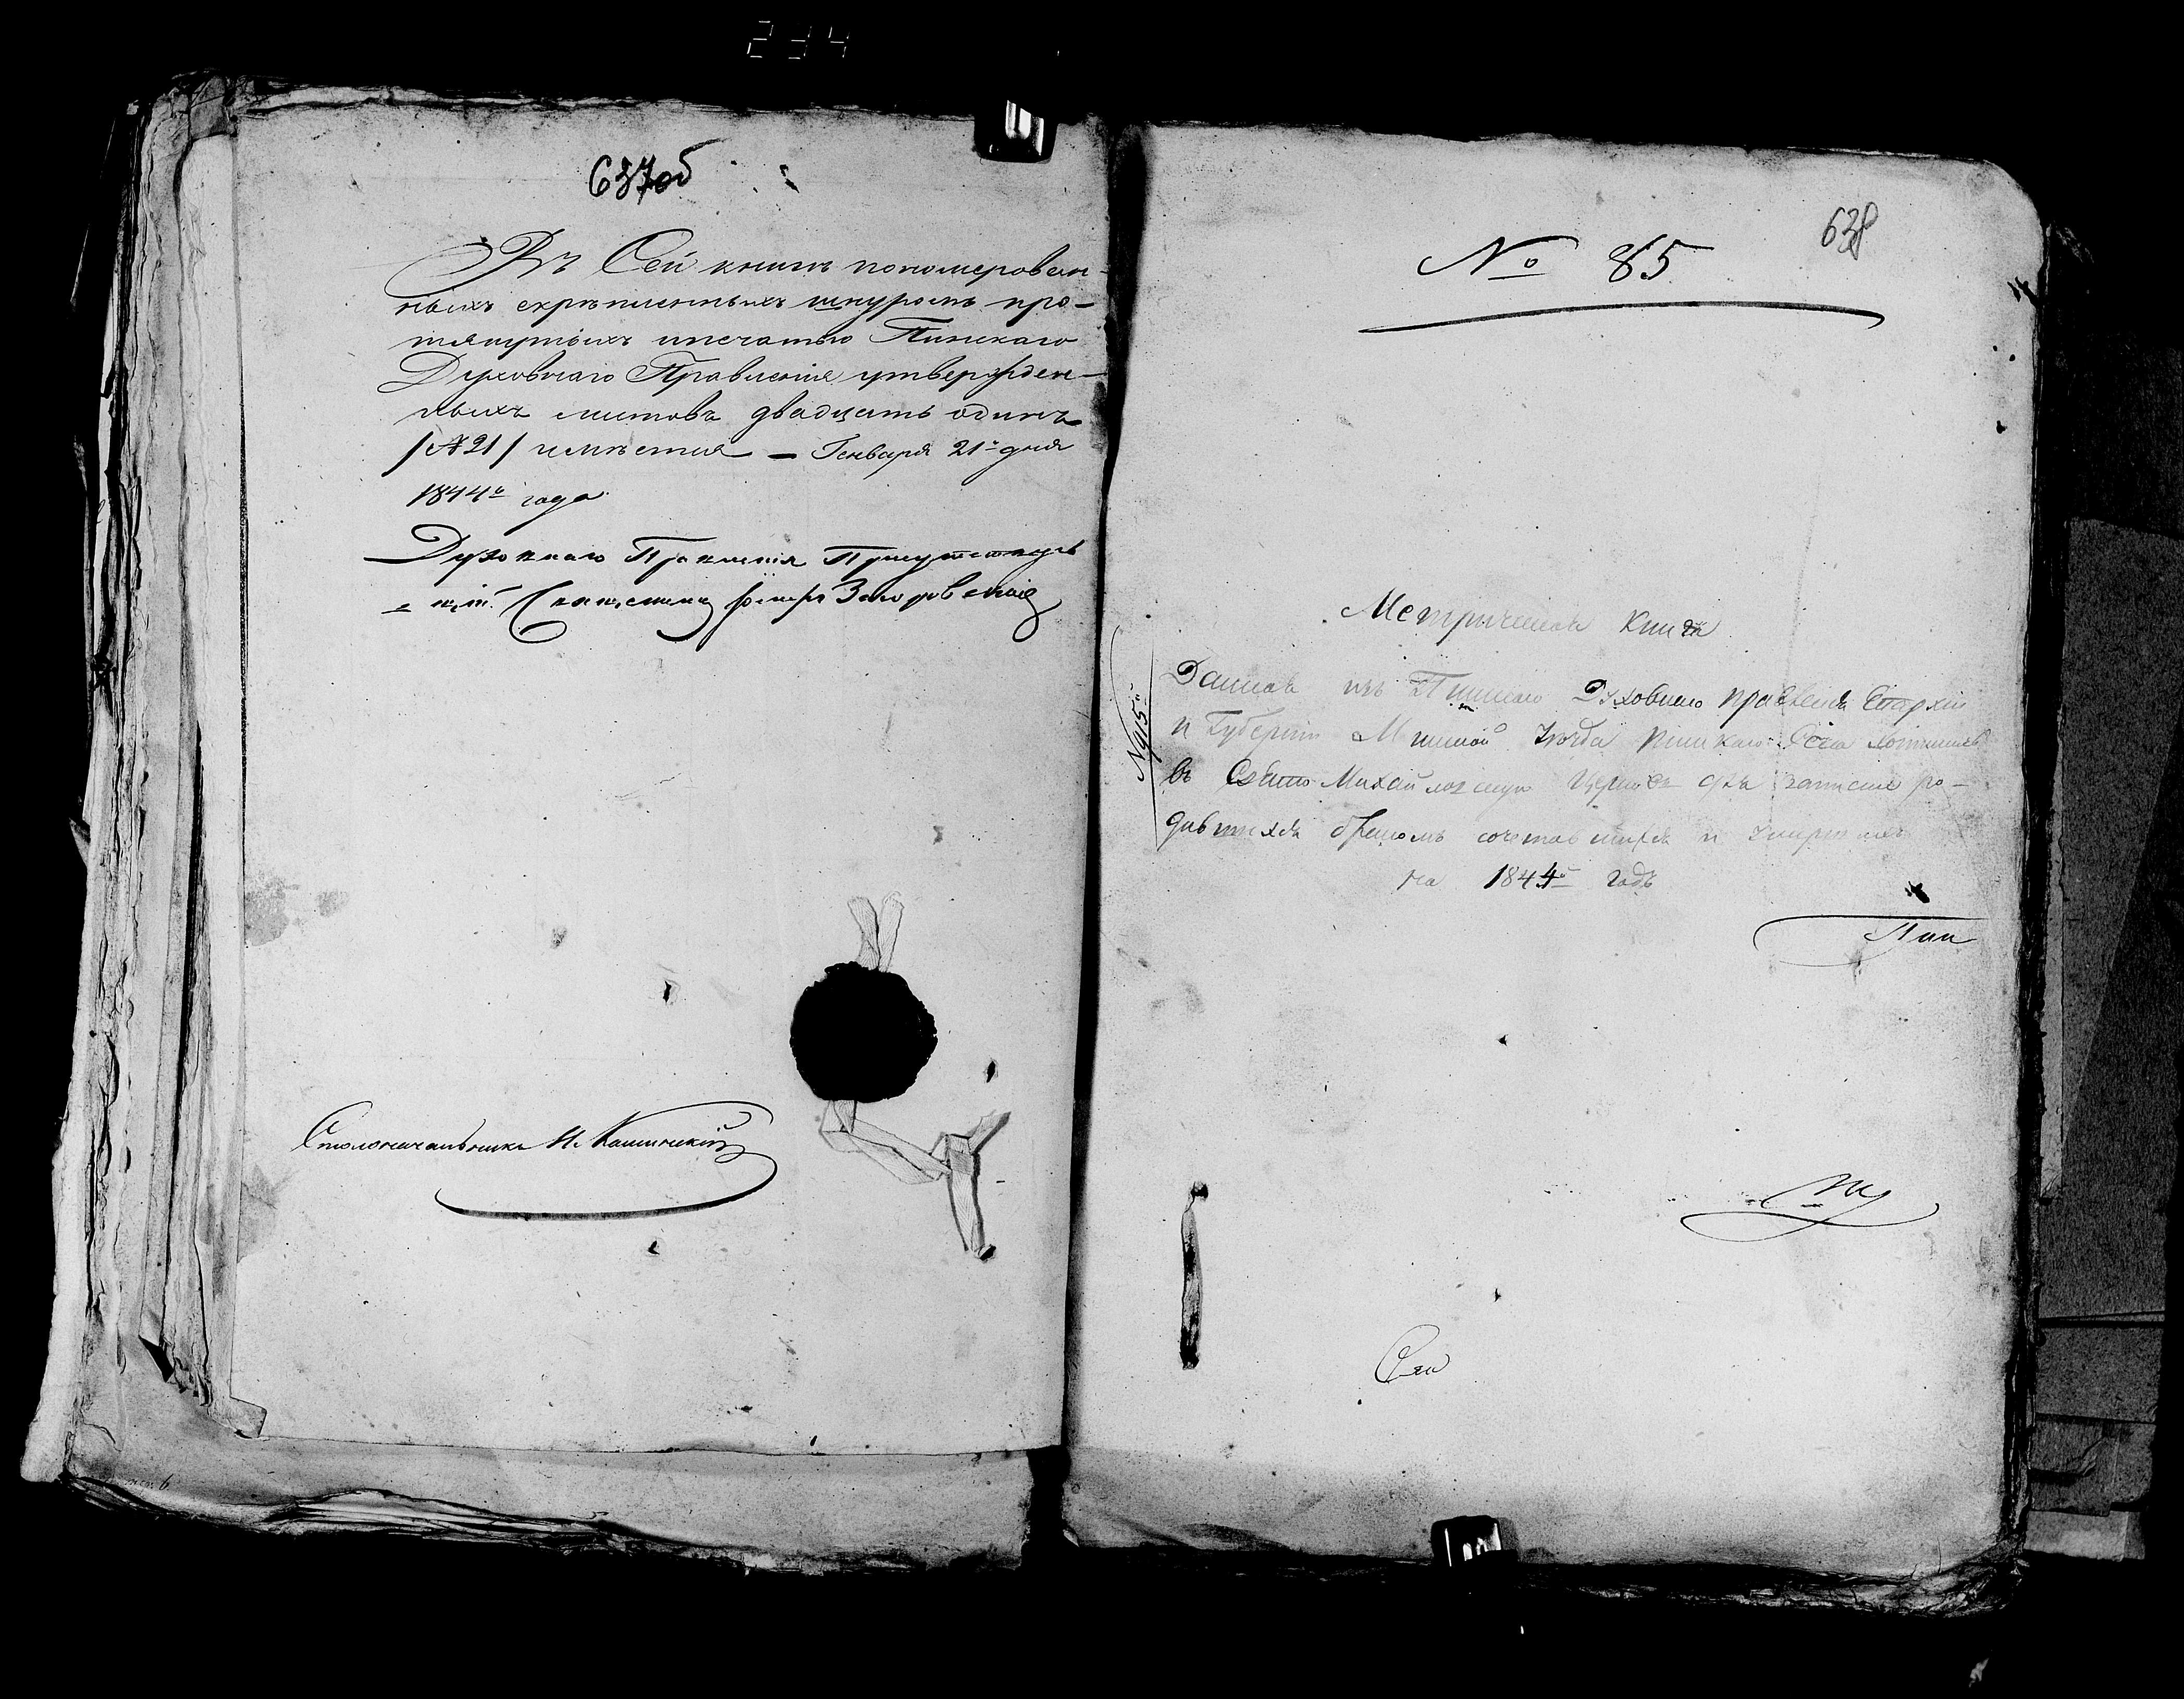 234
637об
Въ Сей книгѣ пономерован-
ныхъ скрѣпленныхъ шнуромъ про-
тянутыхъ ипечатью Пинскаго
Духовнаго Правленія утвержден-
ныхъ листовъ двадцать одинъ
/№21/ имѣется — Генваря 21го дня
1844го года
Духовнаго Правленія Присутствую-
щій Священникъ
Столоначальникъ И.
638
№ 85
Метрическая Книга
Данная изъ Пинскаго Духовнаго правленія Епархіи
и Губерніи Минской Уѣзда Пинскаго Села
въ Свято Михайловскую Церковь для записки ро-
дившихся бракомъ сочетавшихся и умершихъ
на 1844й годъ
Пин